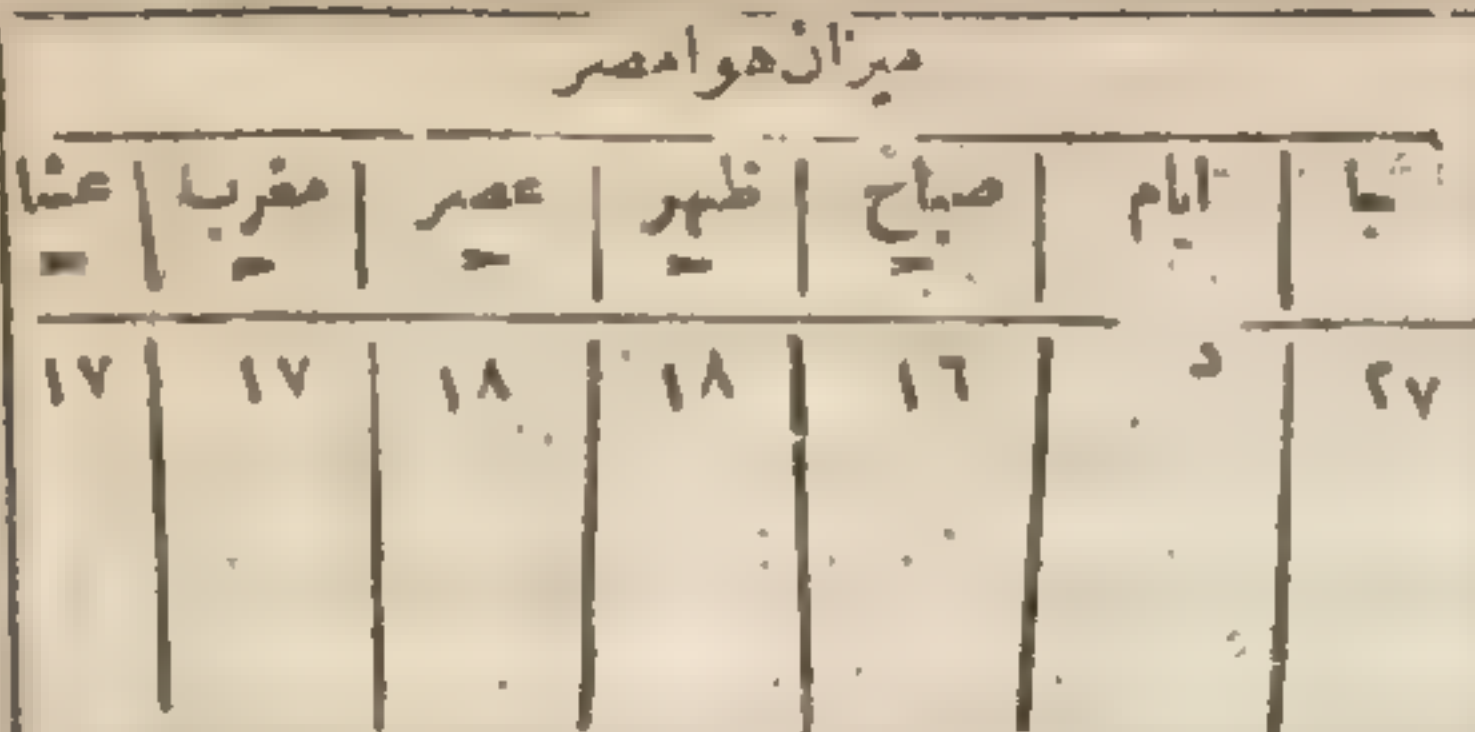 ميزان هوا مصر
ايام صباح ظهر عصر مغرب عشا
٢٧ د ١٦ ١٨ ١٨ ١٧ ١٧